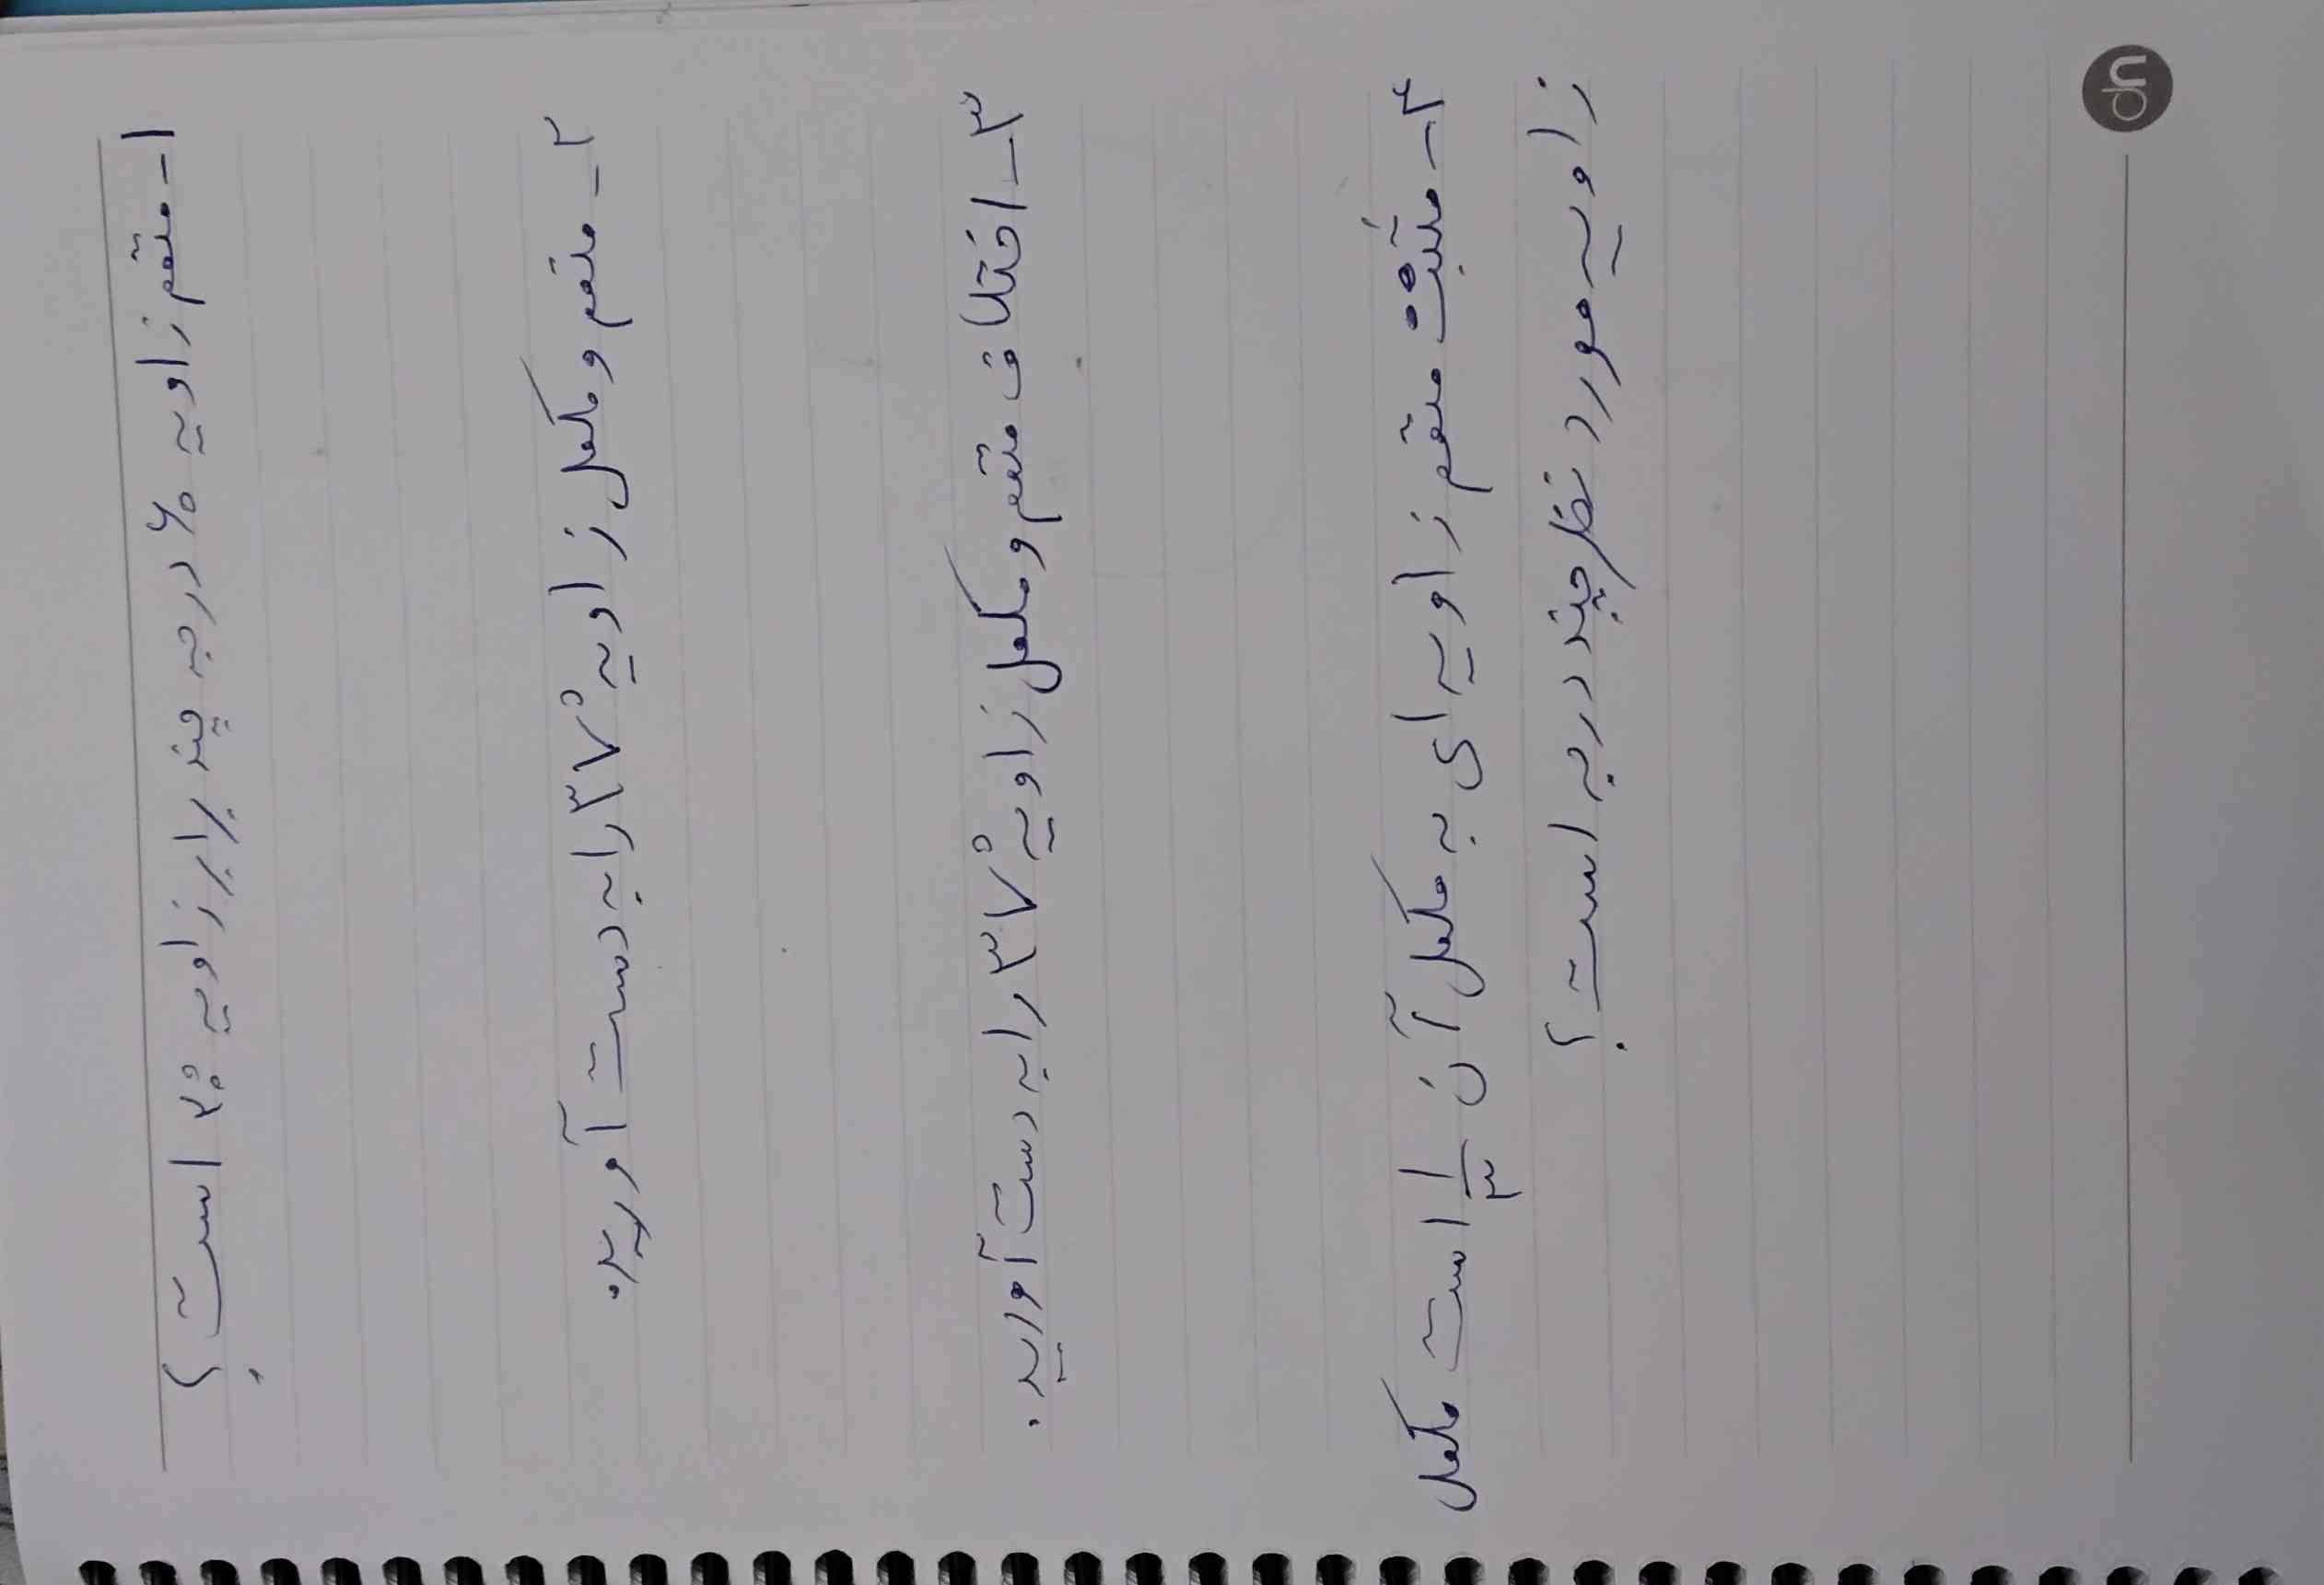 ۱- متمم زاویه ۶۰ درجه چند برابر زاویه ۲۰° است؟
۲- متمم و مکمل زاویه ۳۷° را به دست آورید.
۳- اختلاف متمم و مکمل زاویه ۳۷° را به دست آورید.
۴- نسبت متمم زاویه ای به مکمل آن ۱/۳ است مکمل
زاویه مورد نظر چند درجه است؟
up